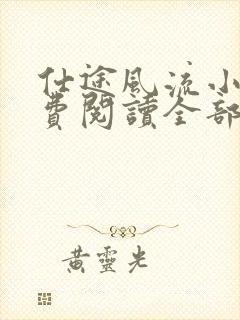 仕途風流小
費閱讀全部
黃靈光